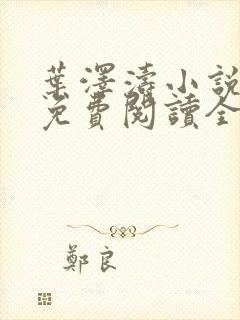 葉澤濤小說
免費閱讀全
鄭良